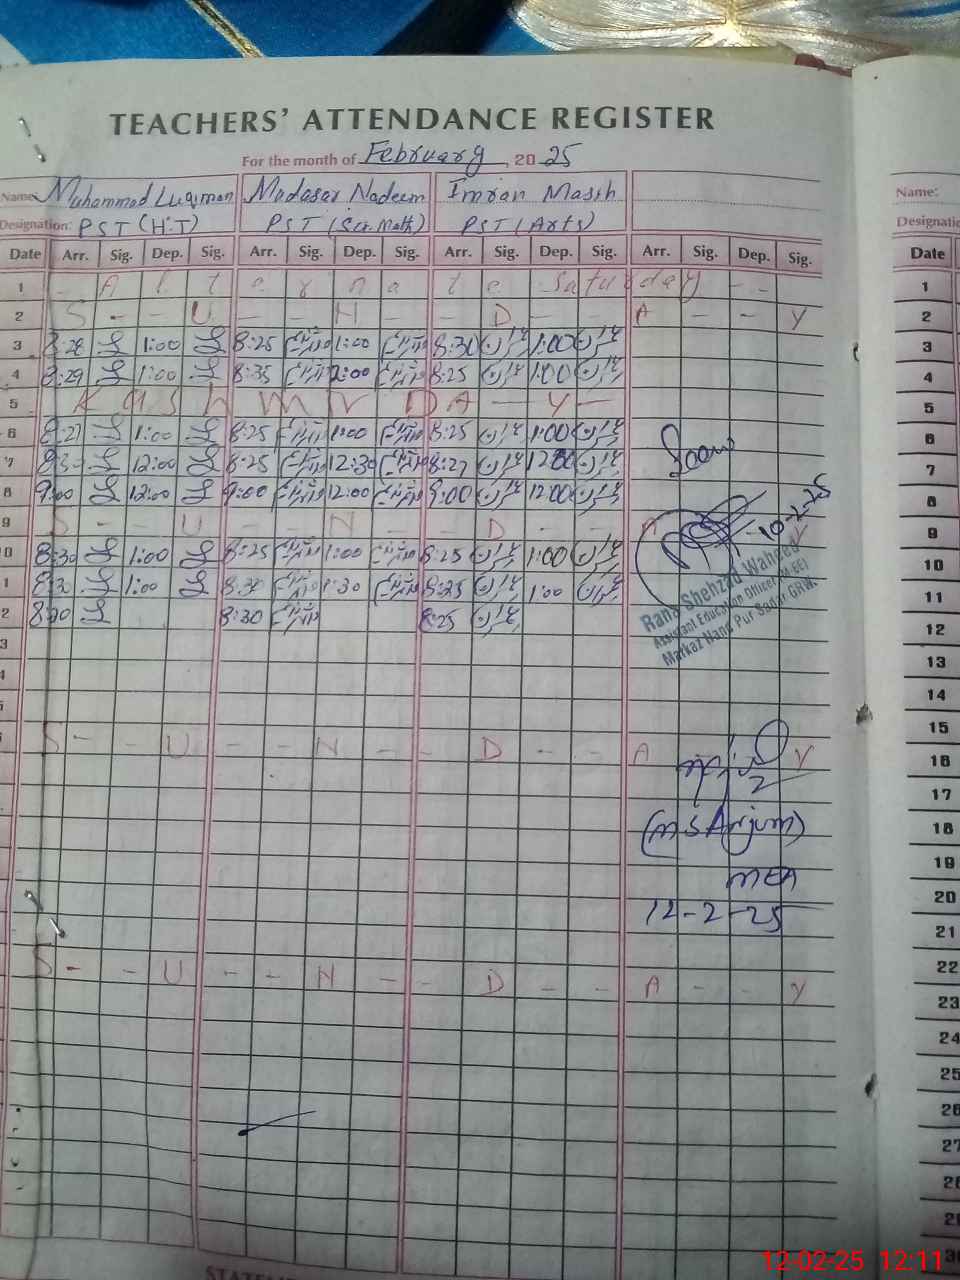 TEACHERS' ATTENDANCE REGISTER
For the month of February, 2025
Name: Muhammad Luqman Madasar Nadeem Imran Masih
Designation: PST (H.T) PST (Sci. Math) PST (Arts)
Date Arr. Sig. Dep. Sig. Arr. Sig. Dep. Sig. Arr. Sig. Dep. Sig. Arr. Sig. Dep. Sig.
1 A l t e r n a t e Saturday
2 S - - U - - N - - D - - A - - Y
3 8:28 1:00 8:25 1:00 8:30 1:00
4 8:29 1:00 8:35 2:00 8:25 1:00
5 K a s h m r DA - Y -
6 8:27 1:00 8:25 1:00 8:25 1:00
7 8:30 12:00 8:25 12:30 8:27 12:00
8 9:00 12:00 9:00 12:00 9:00 12:00
9 S - - U - - N - - D - - A
0 8:30 1:00 8:25 1:00 8:25 1:00
1 8:30 1:00 8:30 1:30 8:25 1:00
2 8:20 8:30 8:25
3
4
S - - U - - N - - D - - A Y
S - - U - - N - - D - - A - - Y
10-2-25
Rana Shehzad Waheed
Assistant Education Officer (M-EE)
Markaz Nang Pur Sadar GRW.
(M S Anjum)
MEA
12-2-25
Name:
Date
1
2
3
4
5
6
7
8
9
10
11
12
13
14
15
16
17
18
19
20
21
22
23
24
25
26
27
12-02-25 12:11